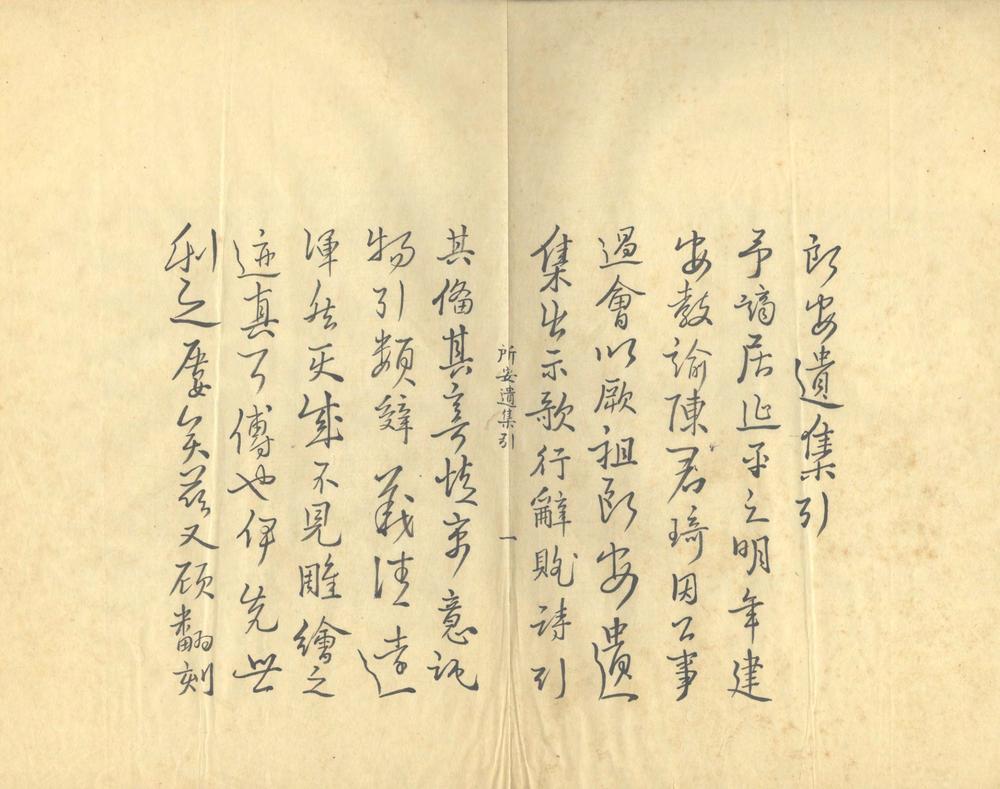 所安遺集引
予謫居延平之明年建
安教諭陳君琦因公事
過會以厥祖所安遺
集出示歌行辭賦詩引
所安遺集引
一
其備其音慎密意託
物引類辭義清遠
渾然天成不見雕繪之
迹真可傳也伊先世
利之屢矣茲又顧翻刻